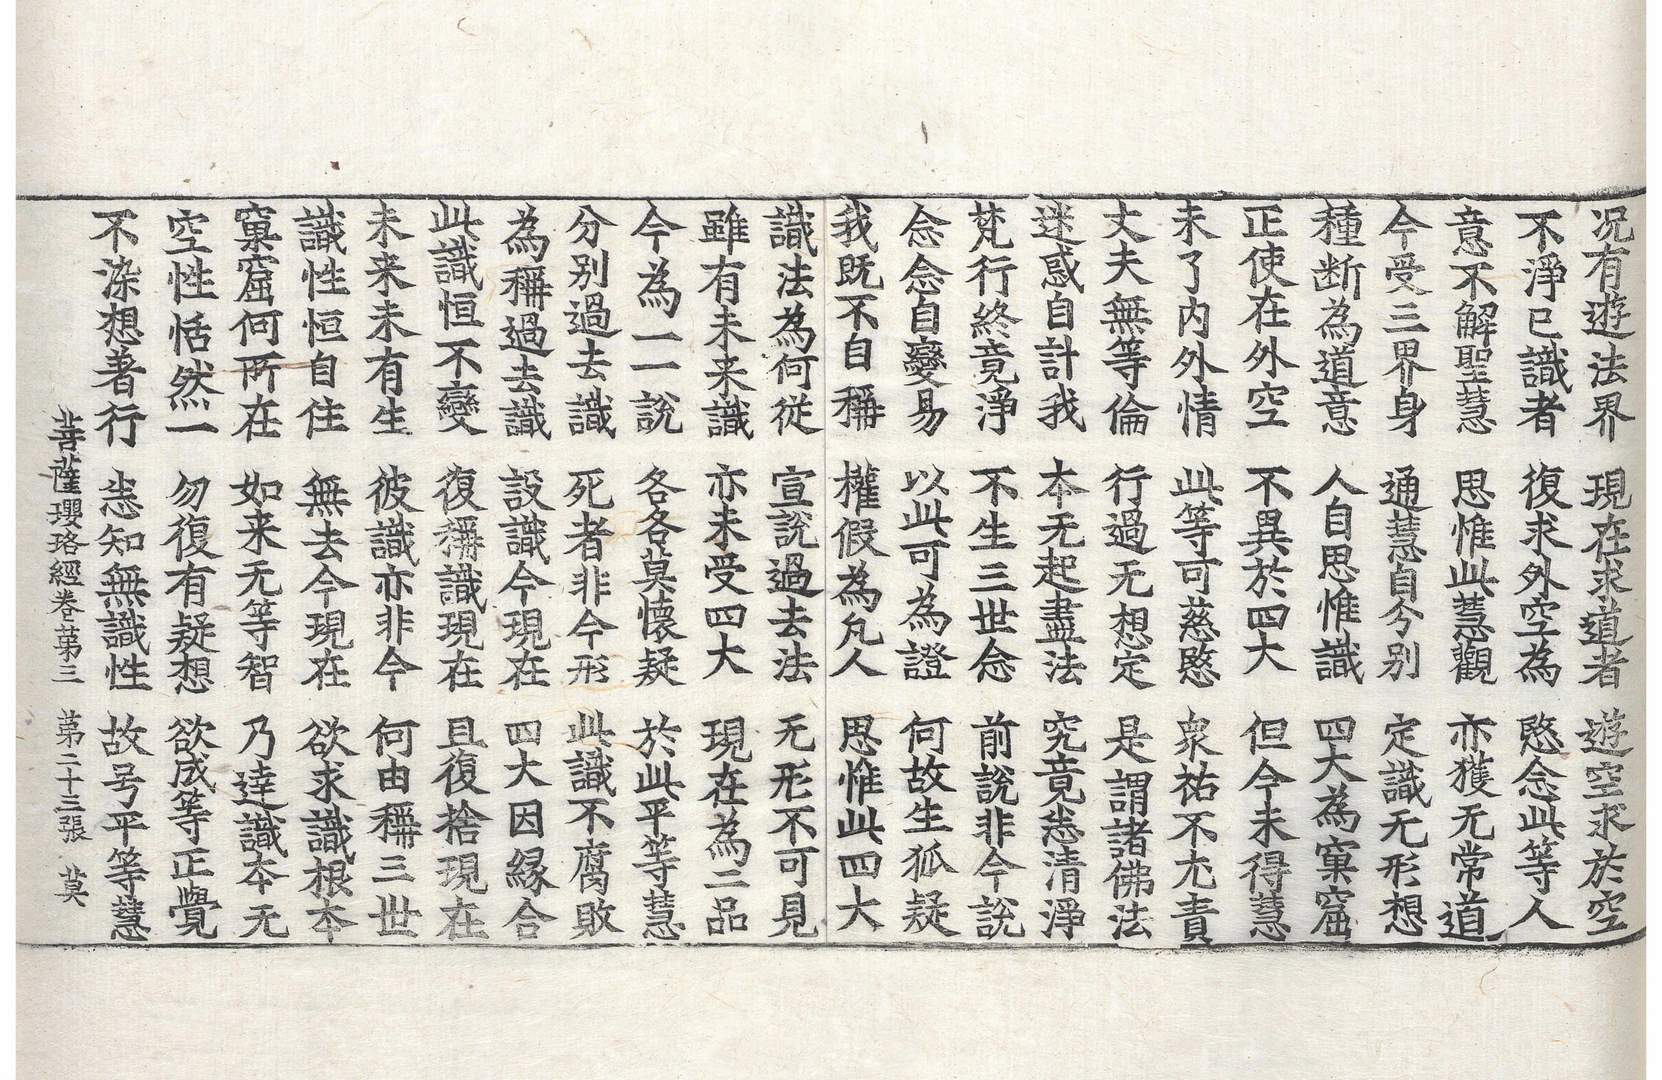 況有遊法界　現在求道者　遊空求於空
不淨已識者　復求外空為　愍念此等人
意不解聖慧　思惟此慧觀　亦獲无常道
今受三界身　通慧自分別　定識无形想
種断為道意　人自思惟識　四大為窠窟
正使在外空　不異於四大　但今未得慧
未了内外情　此等可慈愍　衆祐不尤責
丈夫無等倫　行過无想定　是謂諸佛法
迷惑自計我　本无起盡法　究竟悉清淨
梵行終竟淨　不生三世念　前說非今說
念念自變易　以此可為證　何故生狐疑
我既不自稱　權假為凡人　思惟此四大
識法為何從　宣說過去法　无形不可見
雖有未来識　亦未受四大　現在為二品
今為一一說　各各莫懷疑　於此平等慧
分别過去識　死者非今形　此識不腐敗
為稱過去識　設識今現在　四大因縁合
此識恒不變　復稱識現在　且復捨現在
未来未有生　彼識亦非今　何由稱三世
識性恒自住　無去今現在　欲求識根本
窠窟何所在　如来无等智　乃達識本无
空性恬然一　勿復有疑想　欲成等正覺
不染想著行　悉知無識性　故号平等慧
菩薩瓔珞經卷第三　第二十三張　莫